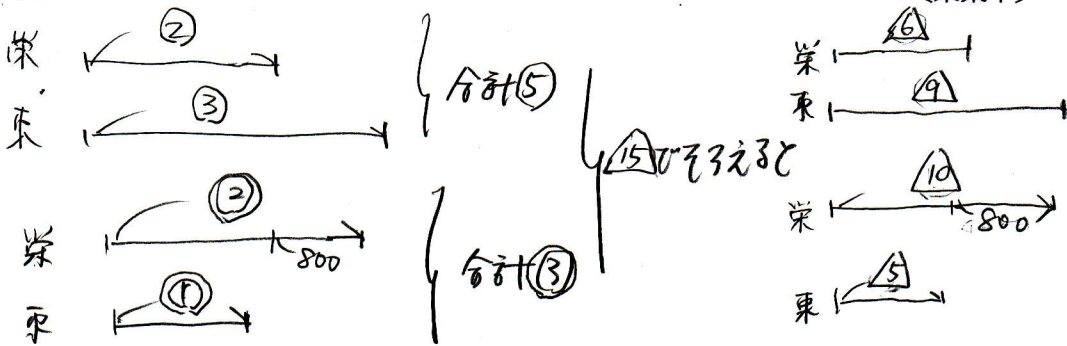 栄 ②
東 ③
合計⑤
栄 ② 800
東 ①
合計③
15でそろえると
栄 6
東 9
栄 10 800
東 5